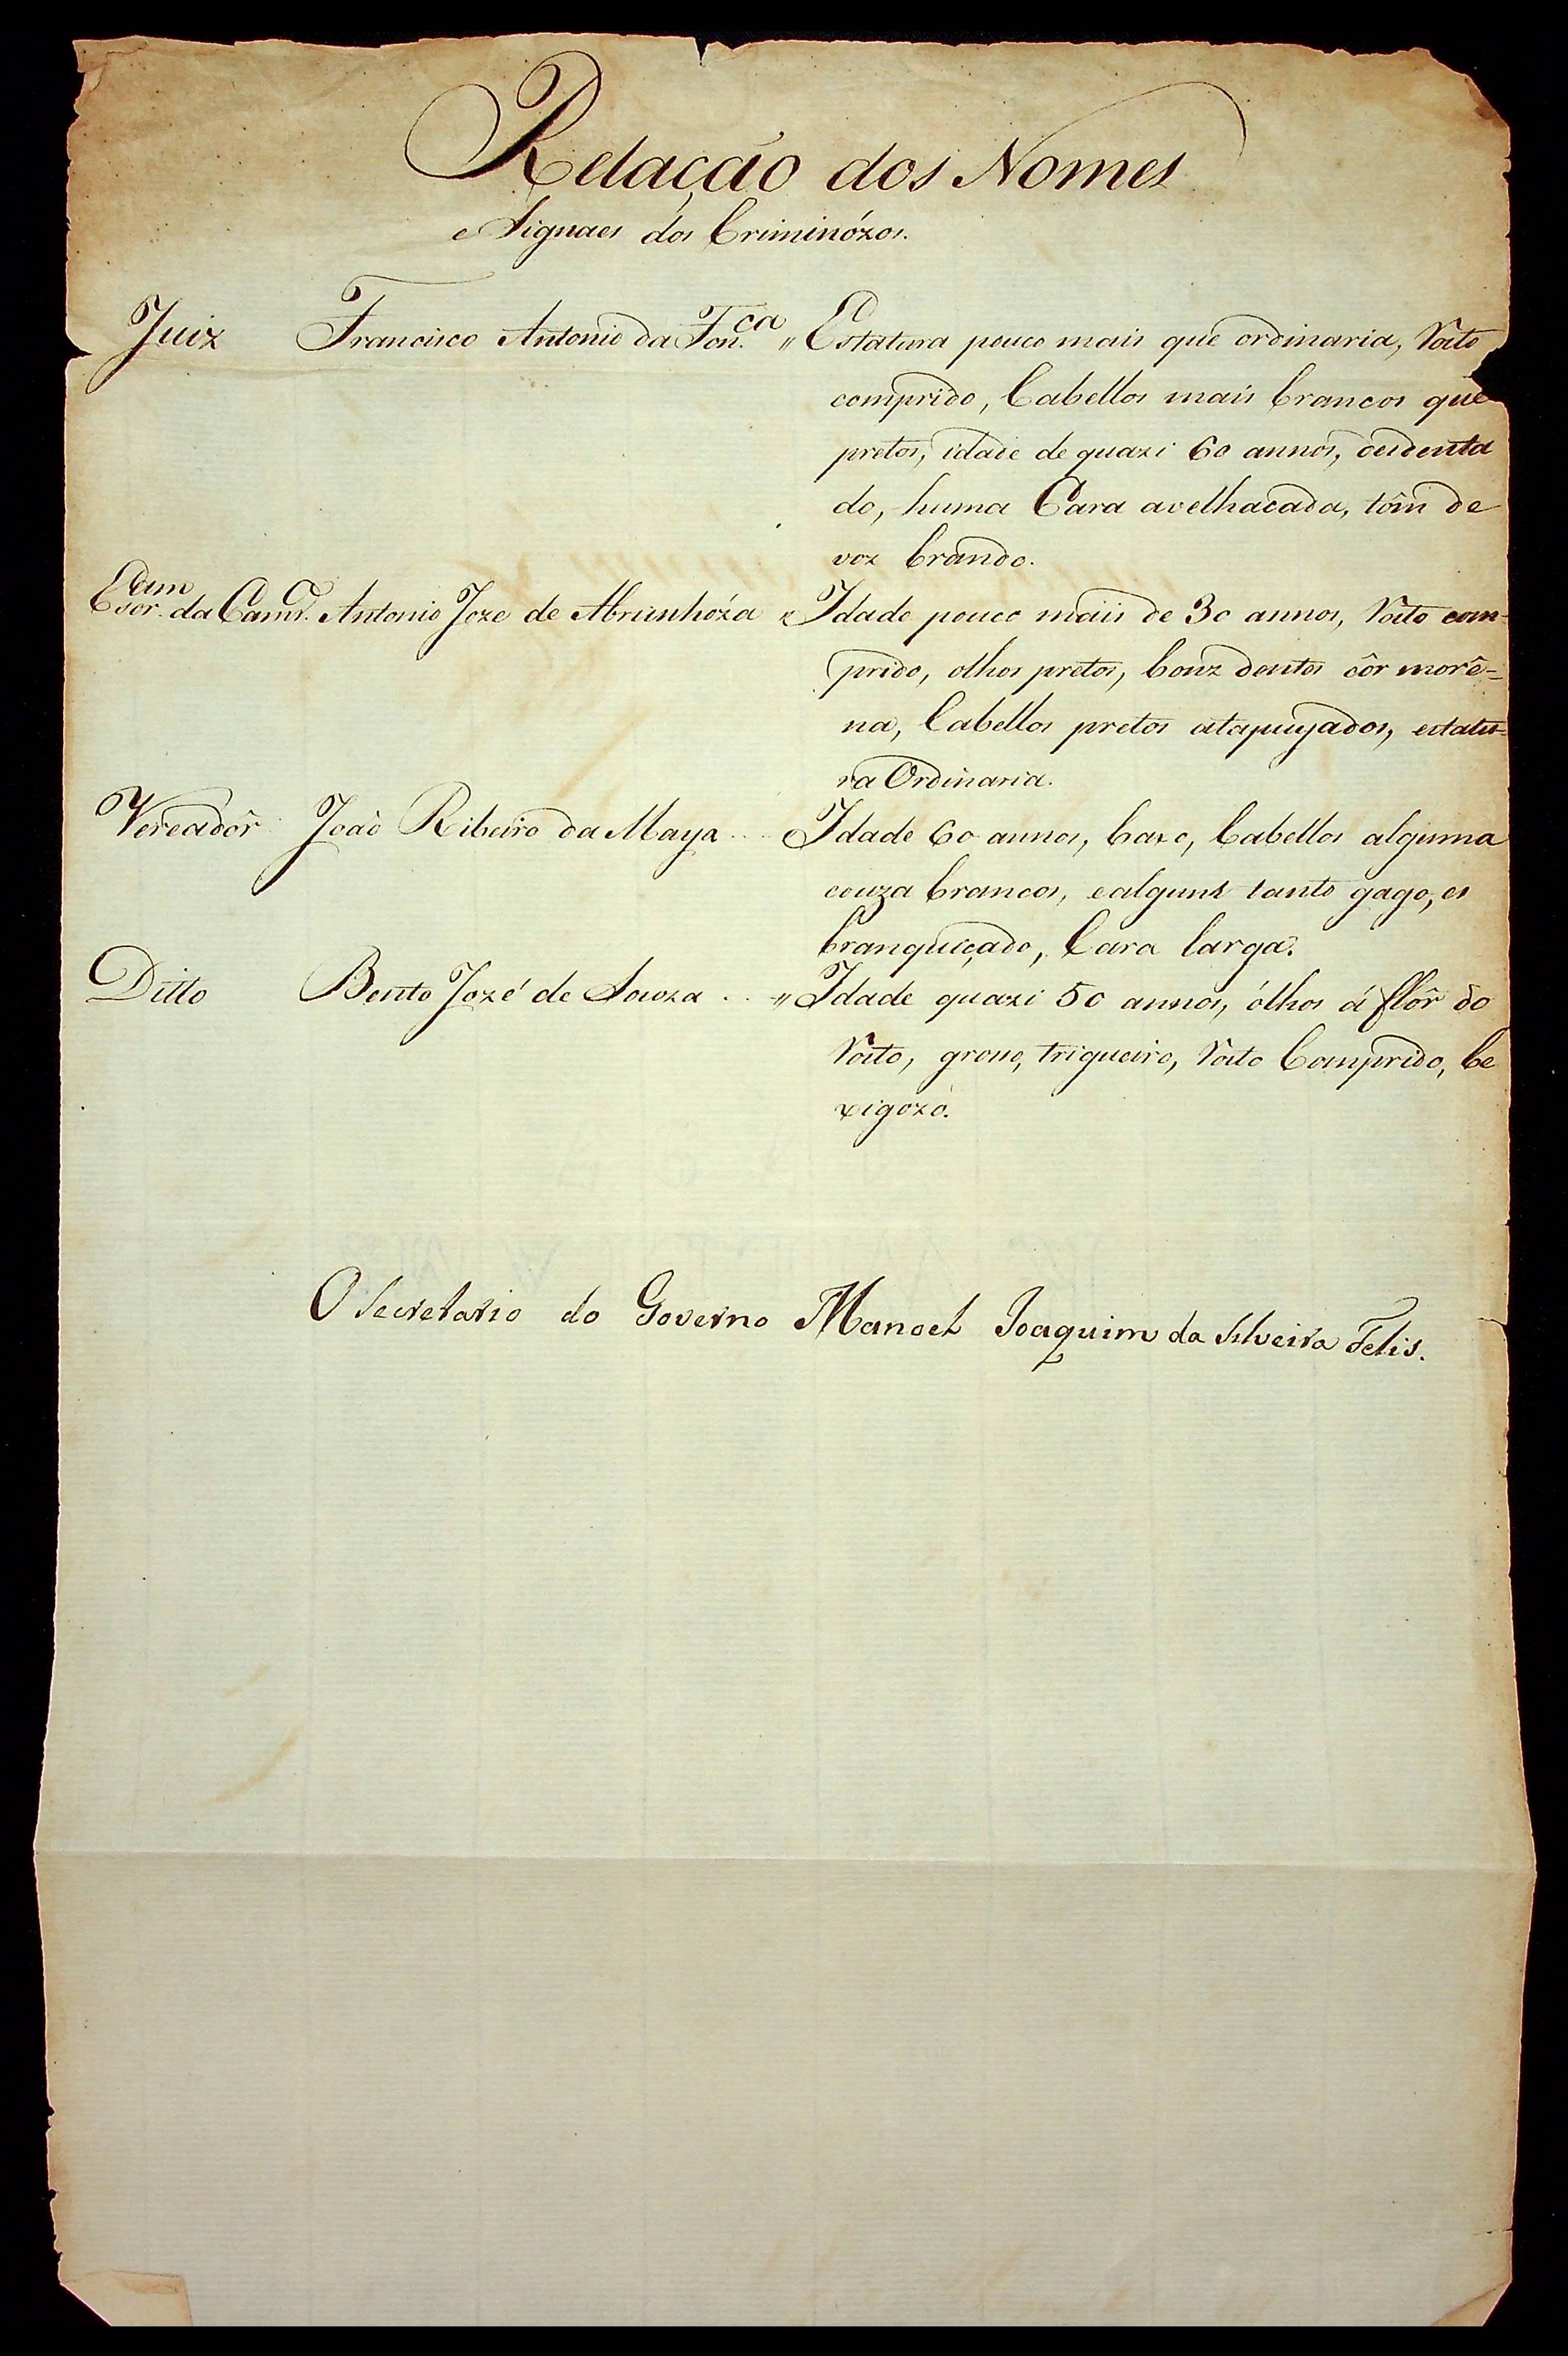 Relação dos Nomes
e Signaes dos Criminózos.
Juiz Francisco Antonio da Fon.ca " Estatura pouco mais que ordinaria, Rosto
comprido, Cabellos mais brancos que
pretos, idade de quazi 60 annos, desdenta
do, huma Cara avelhacada, tôm de
voz brando.
da Antonio Joze de Abrunhóza " Idade pouco mais de 30 annos, Rosto com-
prido, olhos pretos, bonz dentes côr morê-
na, Cabellos pretos atapuyados, estatu-
ra Ordinaria.
Vereadôr João Ribeiro da Maya .... Idade 60 annos, baxo, Cabellos alguma
couza brancos, e algunt tanto gago, es
branquiçado, Cara larga.
Ditto Bento Jozé de Souza .. " Idade quazi 50 annos, ólhos á flôr do
Rosto, groço, trigueiro, Rosto Comprido, be
xigozo.
O Secretario do Governo Manoel Joaquim da Silveira Felis.